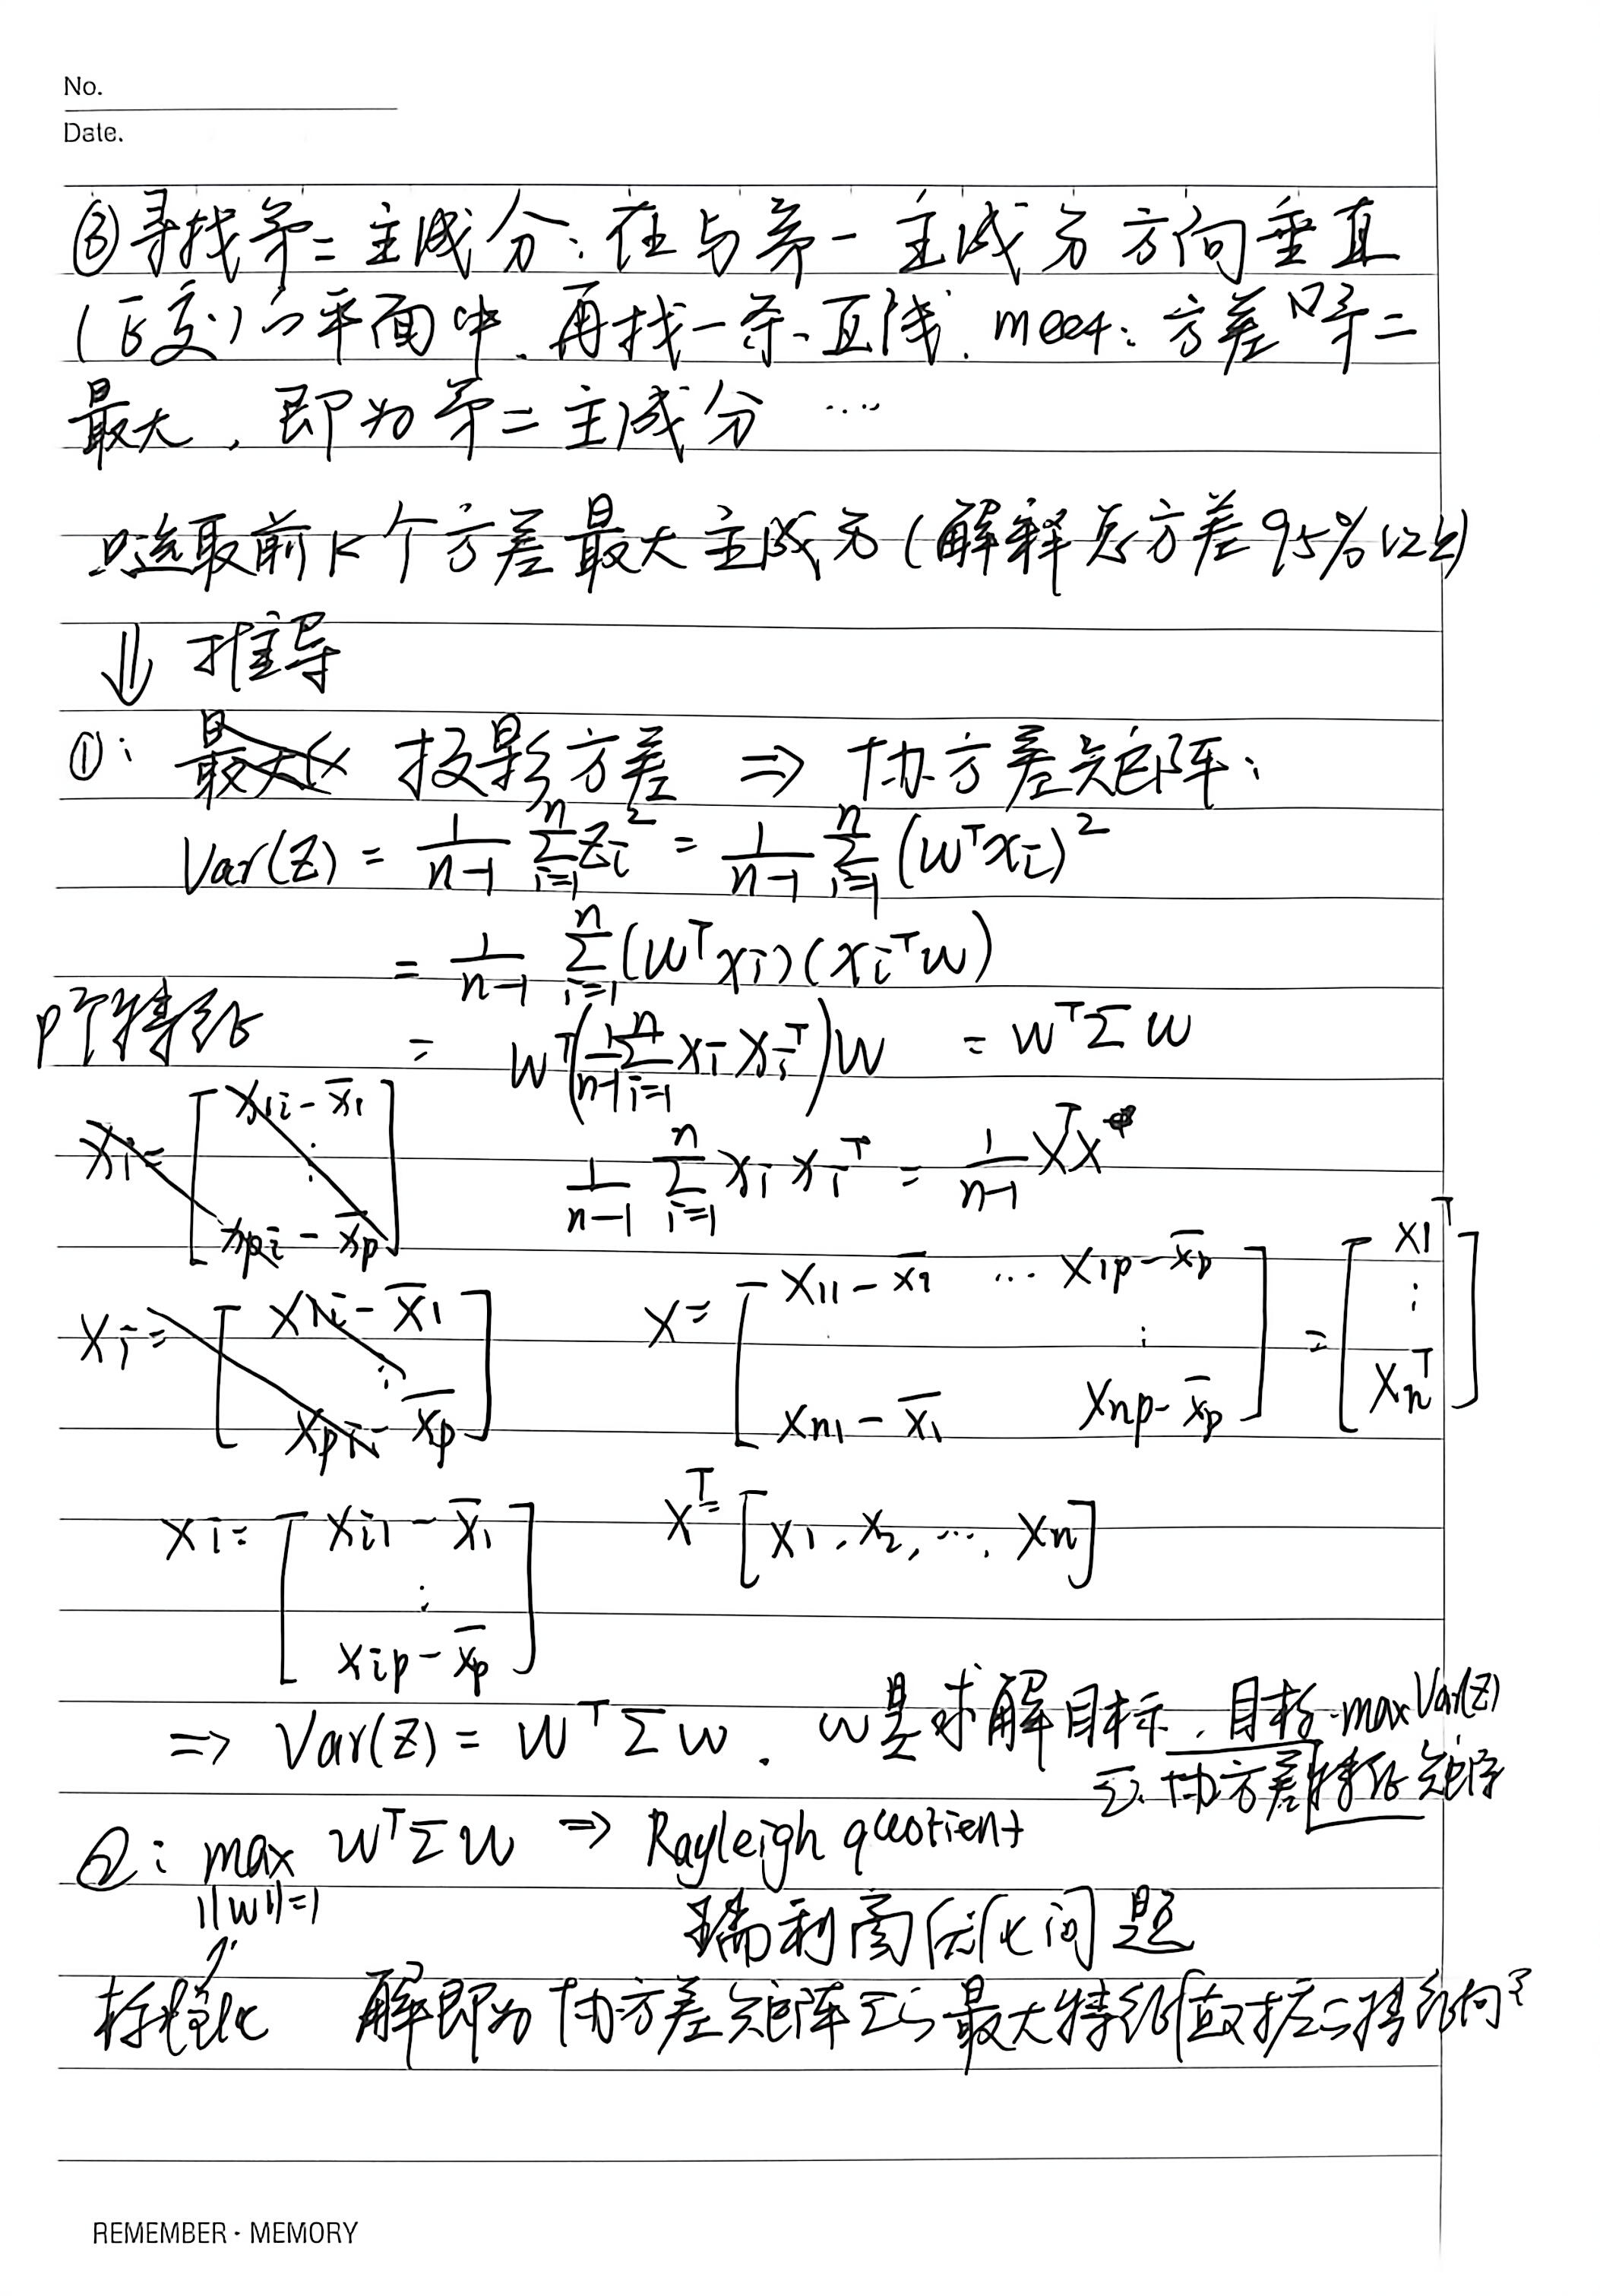 No.
Date.
③寻找第二主成分:在与第一主成分方向垂直
(正交)的平面中,再找一条直线,meet:方差第二
最大,即为第二主成分 …
选取前K个方差最大主成分(解释总方差95%以上)
⇓ 推导
①: 投影方差 ⇒ 协方差矩阵:
Var(Z) = 1/(n-1) Σ_{i=1}^{n} Zi² = 1/(n-1) Σ_{i=1}^{n} (Wᵀxi)²
= 1/(n-1) Σ_{i=1}^{n} (Wᵀxi)(xiᵀw)
p个特征 = Wᵀ(1/(n-1) Σ_{i=1}^{n} xi xiᵀ)W = WᵀΣW
xi = [x1i - x̄1 ⋮ xpi - x̄p]
1/(n-1) Σ_{i=1}^{n} xi xiᵀ = 1/(n-1) XᵀX
xi = [x1i - x̄1 ⋮ xpi - x̄p]
X = [x11 - x̄1 … x1p - x̄p ⋮ xn1 - x̄1 xnp - x̄p] = [x1ᵀ ⋮ xnᵀ]
xi = [xi1 - x̄1 ⋮ xip - x̄p]
Xᵀ = [x1, x2, …, xn]
⇒ Var(Z) = WᵀΣW. w是求解目标,目标max Var(Z)
Σ:协方差特征矩阵
②: max WᵀΣW ⇒ Rayleigh quotient
||w||=1
瑞利商优化问题
标准化 解即为协方差矩阵Σ的最大特征值对应的特征向